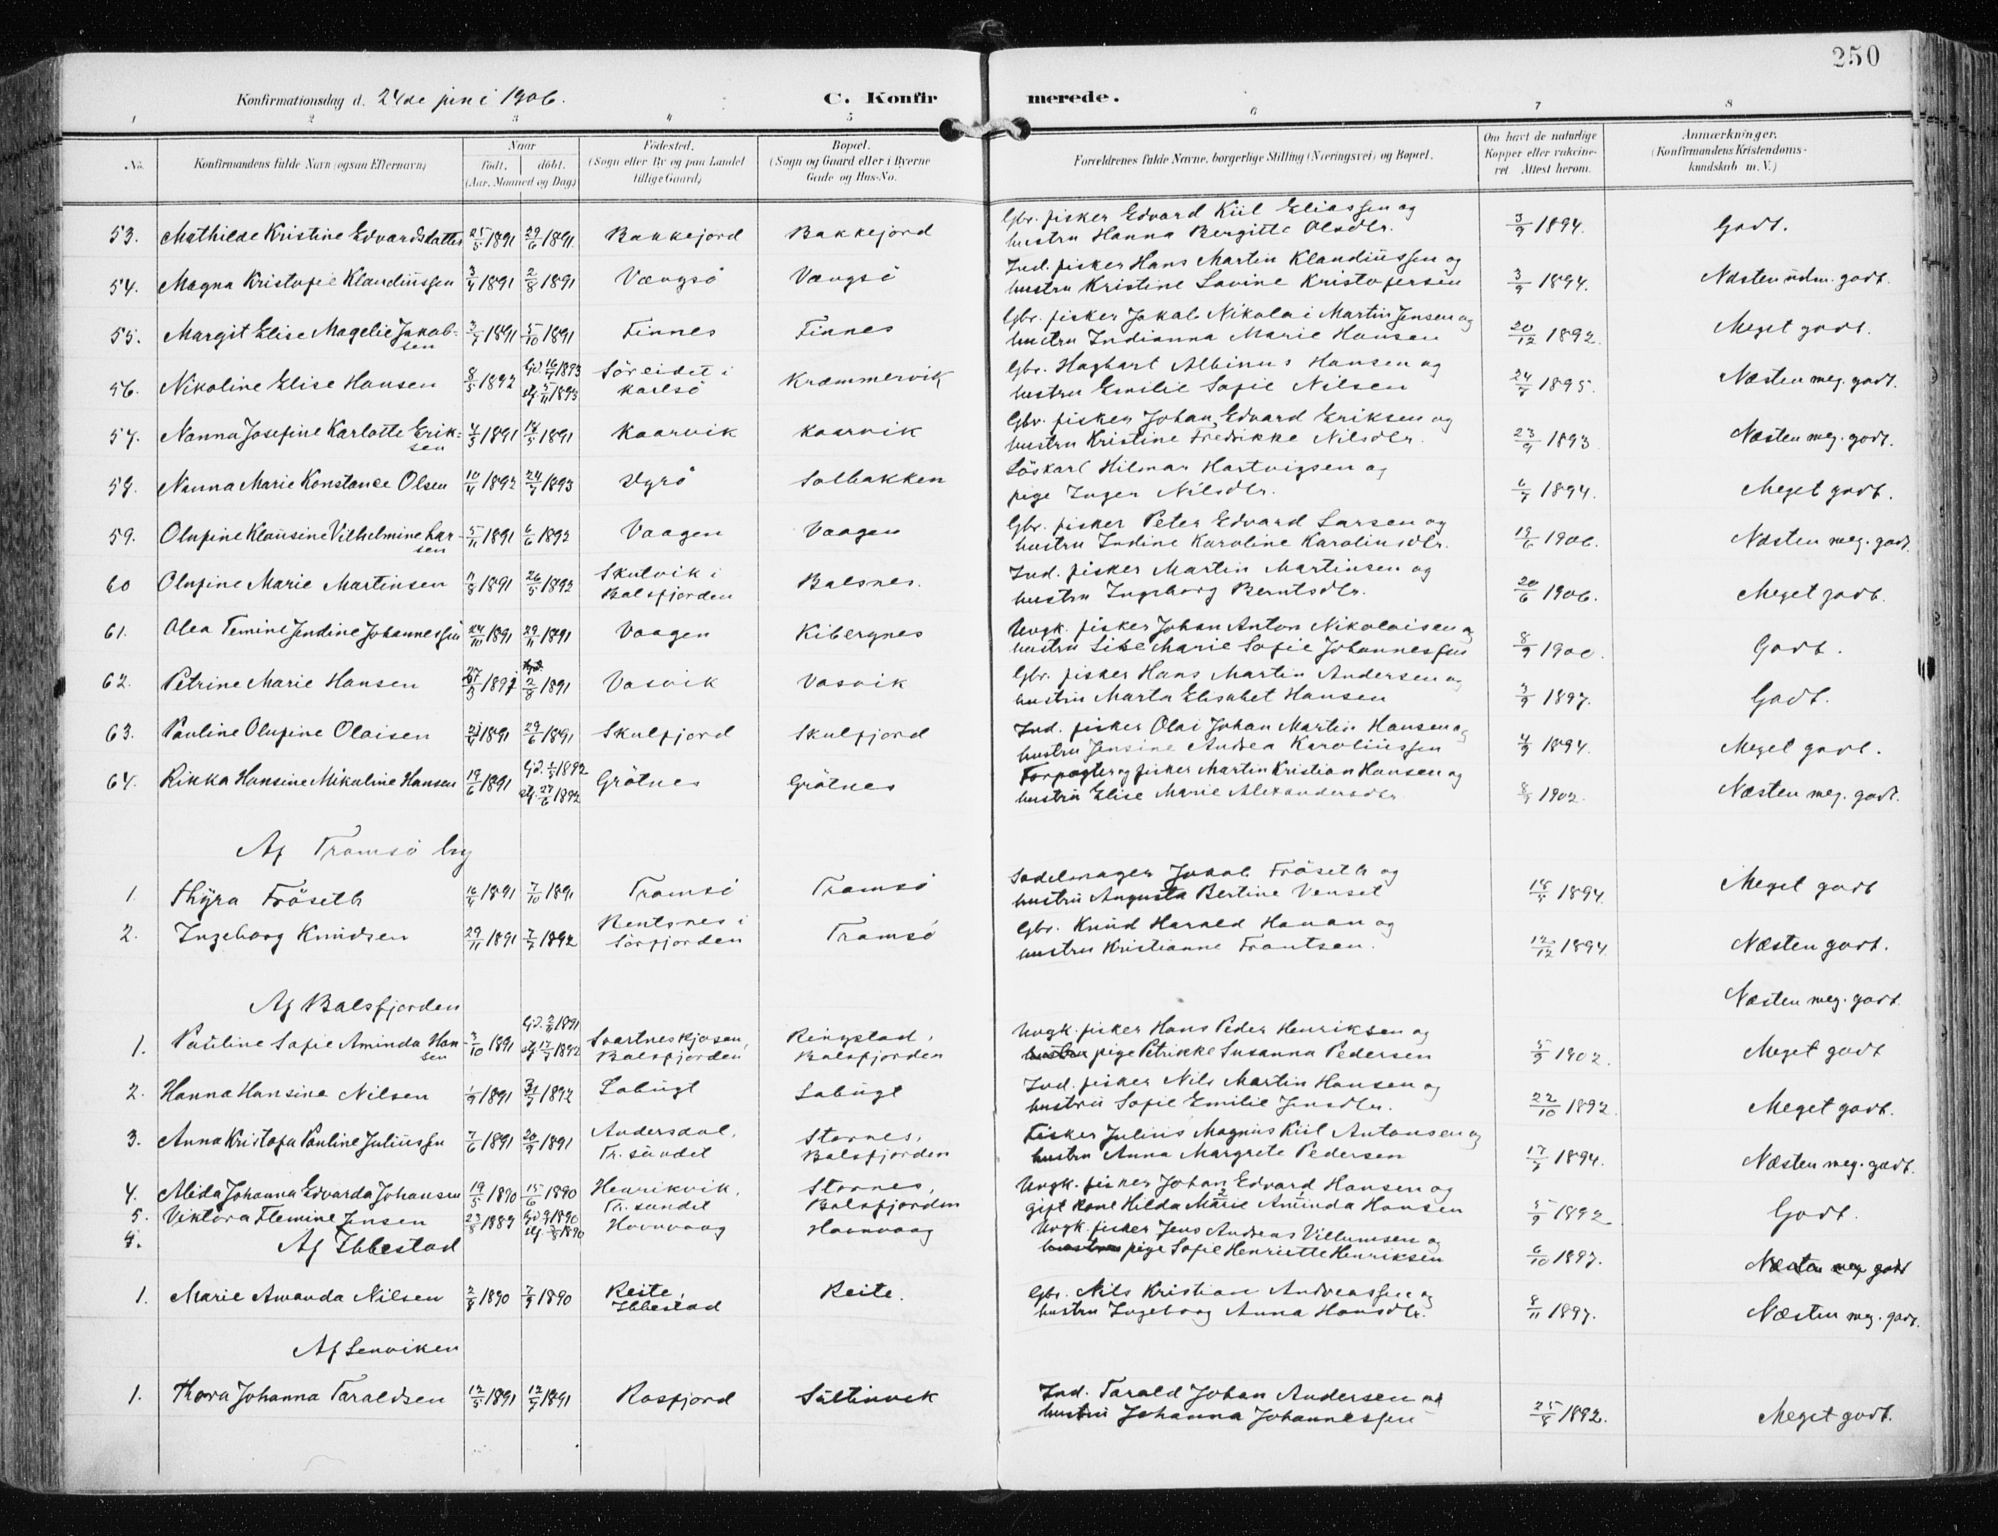 250
Konfirmationsdag d. 24de juni 1906. C. Konfirmerede.
1 2 3 4 5 6 7 8
No. Konfirmandens fulde Navn (ogsaa Efternavn) Naar født. døbt. (Aar, Maaned og Dag) Fødested. (Sogn eller By og paa Landet tillige Gaard) Bopæl. (Sogn og Gaard eller i Byerne Gade og Hus-No. Forældrenes fulde Navne, borgerlige Stilling (Næringsvei) og Bopæl. Om havt de naturlige Kopper eller vaccineret. Attest herom. Anmærkninger. (Konfirmandens Kristendomskundskab m. V.)
53. Mathilde Kristine Edvardsdatter 25/5 1891 29/6 1891 Bakkejord Bakkejord Gbr. fisker Edvard Kiil Eliassen og hustru Hanna Bergitte Olsdtr. 3/9 1894. Godt.
54. Magna Kristofie Klaudiussen 3/4 1891 2/8 1891 Vængsö Vængsö Ind. fisker Hans Martin Klaudiussen og hustru Kristine Lovine Kristofersen 3/9 1894. Næsten udm. godt.
55. Margit Elise Magelie Jakobsen 3/7 1891 5/10 1891 Finnes Finnes Gbr. fisker Jakob Nikolai Martin Jensen og hustru Indianna Marie Hansen 20/12 1892. Meget godt.
56. Nikoline Elise Hansen 8/5 1892 Gd. 16/7 1893 stf. 5/11 1893 Söreidet i Karlsö Kræmmervik Gbr. Hagbart Albinus Hansen og hustru Emilie Sofie Nilsen 24/7 1895. Næsten meg. godt.
57. Nanna Josefine Karlotte Eriksen 4/3 1891 18/5 1891 Kaarvik Kaarvik Gbr. fisker Johan Edvard Eriksen og hustru Kristine Fredrikke Nilsdtr. 23/9 1893 Næsten meg. godt.
58. Nanna Marie Konstanse Olsen 10/11 1892 24/7 1893 Solbakken Löskarl Hilmar Hartvigsen og pige Inger Nilsdtr. 6/7 1894. Meget godt.
59. Olufine Klausine Vilhelmine Larsen 5/11 1891 6/6 1892 Vaagen Vaagen Gbr. fisker Peter Edvard Larsen og hustru Indine Karoline Karolinsdtr. 19/6 1906. Næsten meg. godt.
60 Olufine Marie Martinsen 26/5 1892 Skutvik i Balsfjorden Balsnes. Ind. fisker Martin Martinsen og hustru Ingeborg Berntsdtr. 20/6 1906. Meget godt.
61. Olea Temine Jendine Johannessen 24/10 1891 29/11 1891 Vaagen Kibergnes Ungk. fisker Johan Anton Nikolaisen og hustru Lise Marie Sofie Johannessen 8/9 1900. Godt.
62. Petrine Marie Hansen 27/3 1891 2/8 1891 Vasvik Vasvik Gbr. fisker Hans Martin Andersen og hustru Marta Elisabet Hansen 3/9 1897. Godt.
63. Pauline Olufine Olaisen 1891 29/6 1891 Skulfjord Skulfjord Ind. fisker Olai Johan Martin Hansen og hustru Jensine Andrea Karoliussen 4/9 1894. Meget godt.
64. Rikka Hansine Nikoline Hansen 19/6 1891 Gd. 1/5 1892 stf. 27/6 1892 Grötnes Grötnes Forpagter og fisker Martin Kristian Hansen og hustru Elise Marie Alexandersdtr. 8/9 1902. Næsten meg. godt.
Af Tromsö by
1. Thyra Fröseth 1891 7/10 1891 Tromsö Tromsö Sadelmager Jakob Fröseth og hustru Augusta Bertine Venset 18/5 1894. Meget godt
2. Ingeborg Knudsen 29/11 1891 7/7 1892 Rentsnes i Sörfjorden Tromsö Gbr. Knud Harald Hanan og hustru Kristianne Frantsen. 12/12 1894. Næsten godt.
Af Balsfjorden Næsten meg. godt.
1. Pauline Sofie Aminda Hansen 3/10 1891 Gd. 1891 stf. 17/7 1892 Svartneskjosen, Balsfjorden Ringstad, Balsfjorden Ungk. fisker Hans Peder Henriksen og hustru pige Petrikke Susanna Pedersen 5/9 1902. Meget godt
2. Hanna Hansine Nilsen 1/9 1891 31/7 1892 Labugt Labugt Ind. fisker Nils Martin Hansen og hustru Sofie Emilie Jensdtr. 22/10 1892. Meget godt.
3. Anna Kristofa Pauline Juliussen 7/6 1891 20/9 1891 Andersdal, Tr. sundet Stornes, Balsfjorden Fisker Julius Magnus Kiil Antonsen og hustru Anna Margrete Pedersen 17/7 1894. Næsten meg. godt.
4. Alida Johanna Edvarda Johansen 19/5 1890 15/6 1890 Henrikvik, Tr. sundet Stornes, Balsfjorden Ungk. fisker Johan Edvard Hansen og gift kone Hilda Marie Aminda Hansen 5/9 1892 Godt.
5. Viktora Flemine Jensen 23/8 1889 1890 1890 Havnvaag Havnvaag Ungk. fisker Jens Andreas Villumsen og hustru pige Sofie Henriette Henriksen 6/10 1897. Næsten meg. godt
Af Ibbestad
1. Marie Amanda Nilsen 1890 7/9 1890 Reite, Ibbestad Reite. Gbr. Nils Kristian Andreassen og hustru Ingeborg Anna Hansdtr. 8/11 1897. Næsten meg. godt.
Af Lenviken
1. Thora Johanna Taraldsen 12/5 1891 12/7 1891 Rosfjord Sultinvik Ind. Tarald Johan Andersen og hustru Johanna Johannessen 25/8 1892. Meget godt.